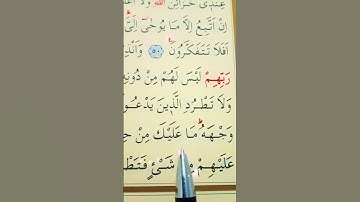 عِنْدٖي خَزَٓائِنُ اللّٰهِ وَلَٓا اَعْلَ
اِنْ اَتَّبِعُ اِلَّا مَا يُوحٰٓى اِلَيَّ
اَفَلَا تَتَفَكَّرُونَ ﴿٥٠﴾ وَاَنْذِ
رَبِّهِمْ لَيْسَ لَهُمْ مِنْ دُونِهٖ
وَلَا تَطْرُدِ الَّذٖينَ يَدْعُو
وَجْهَهُ مَا عَلَيْكَ مِنْ حِ
عَلَيْهِمْ شَيْءٍ فَتَطْ